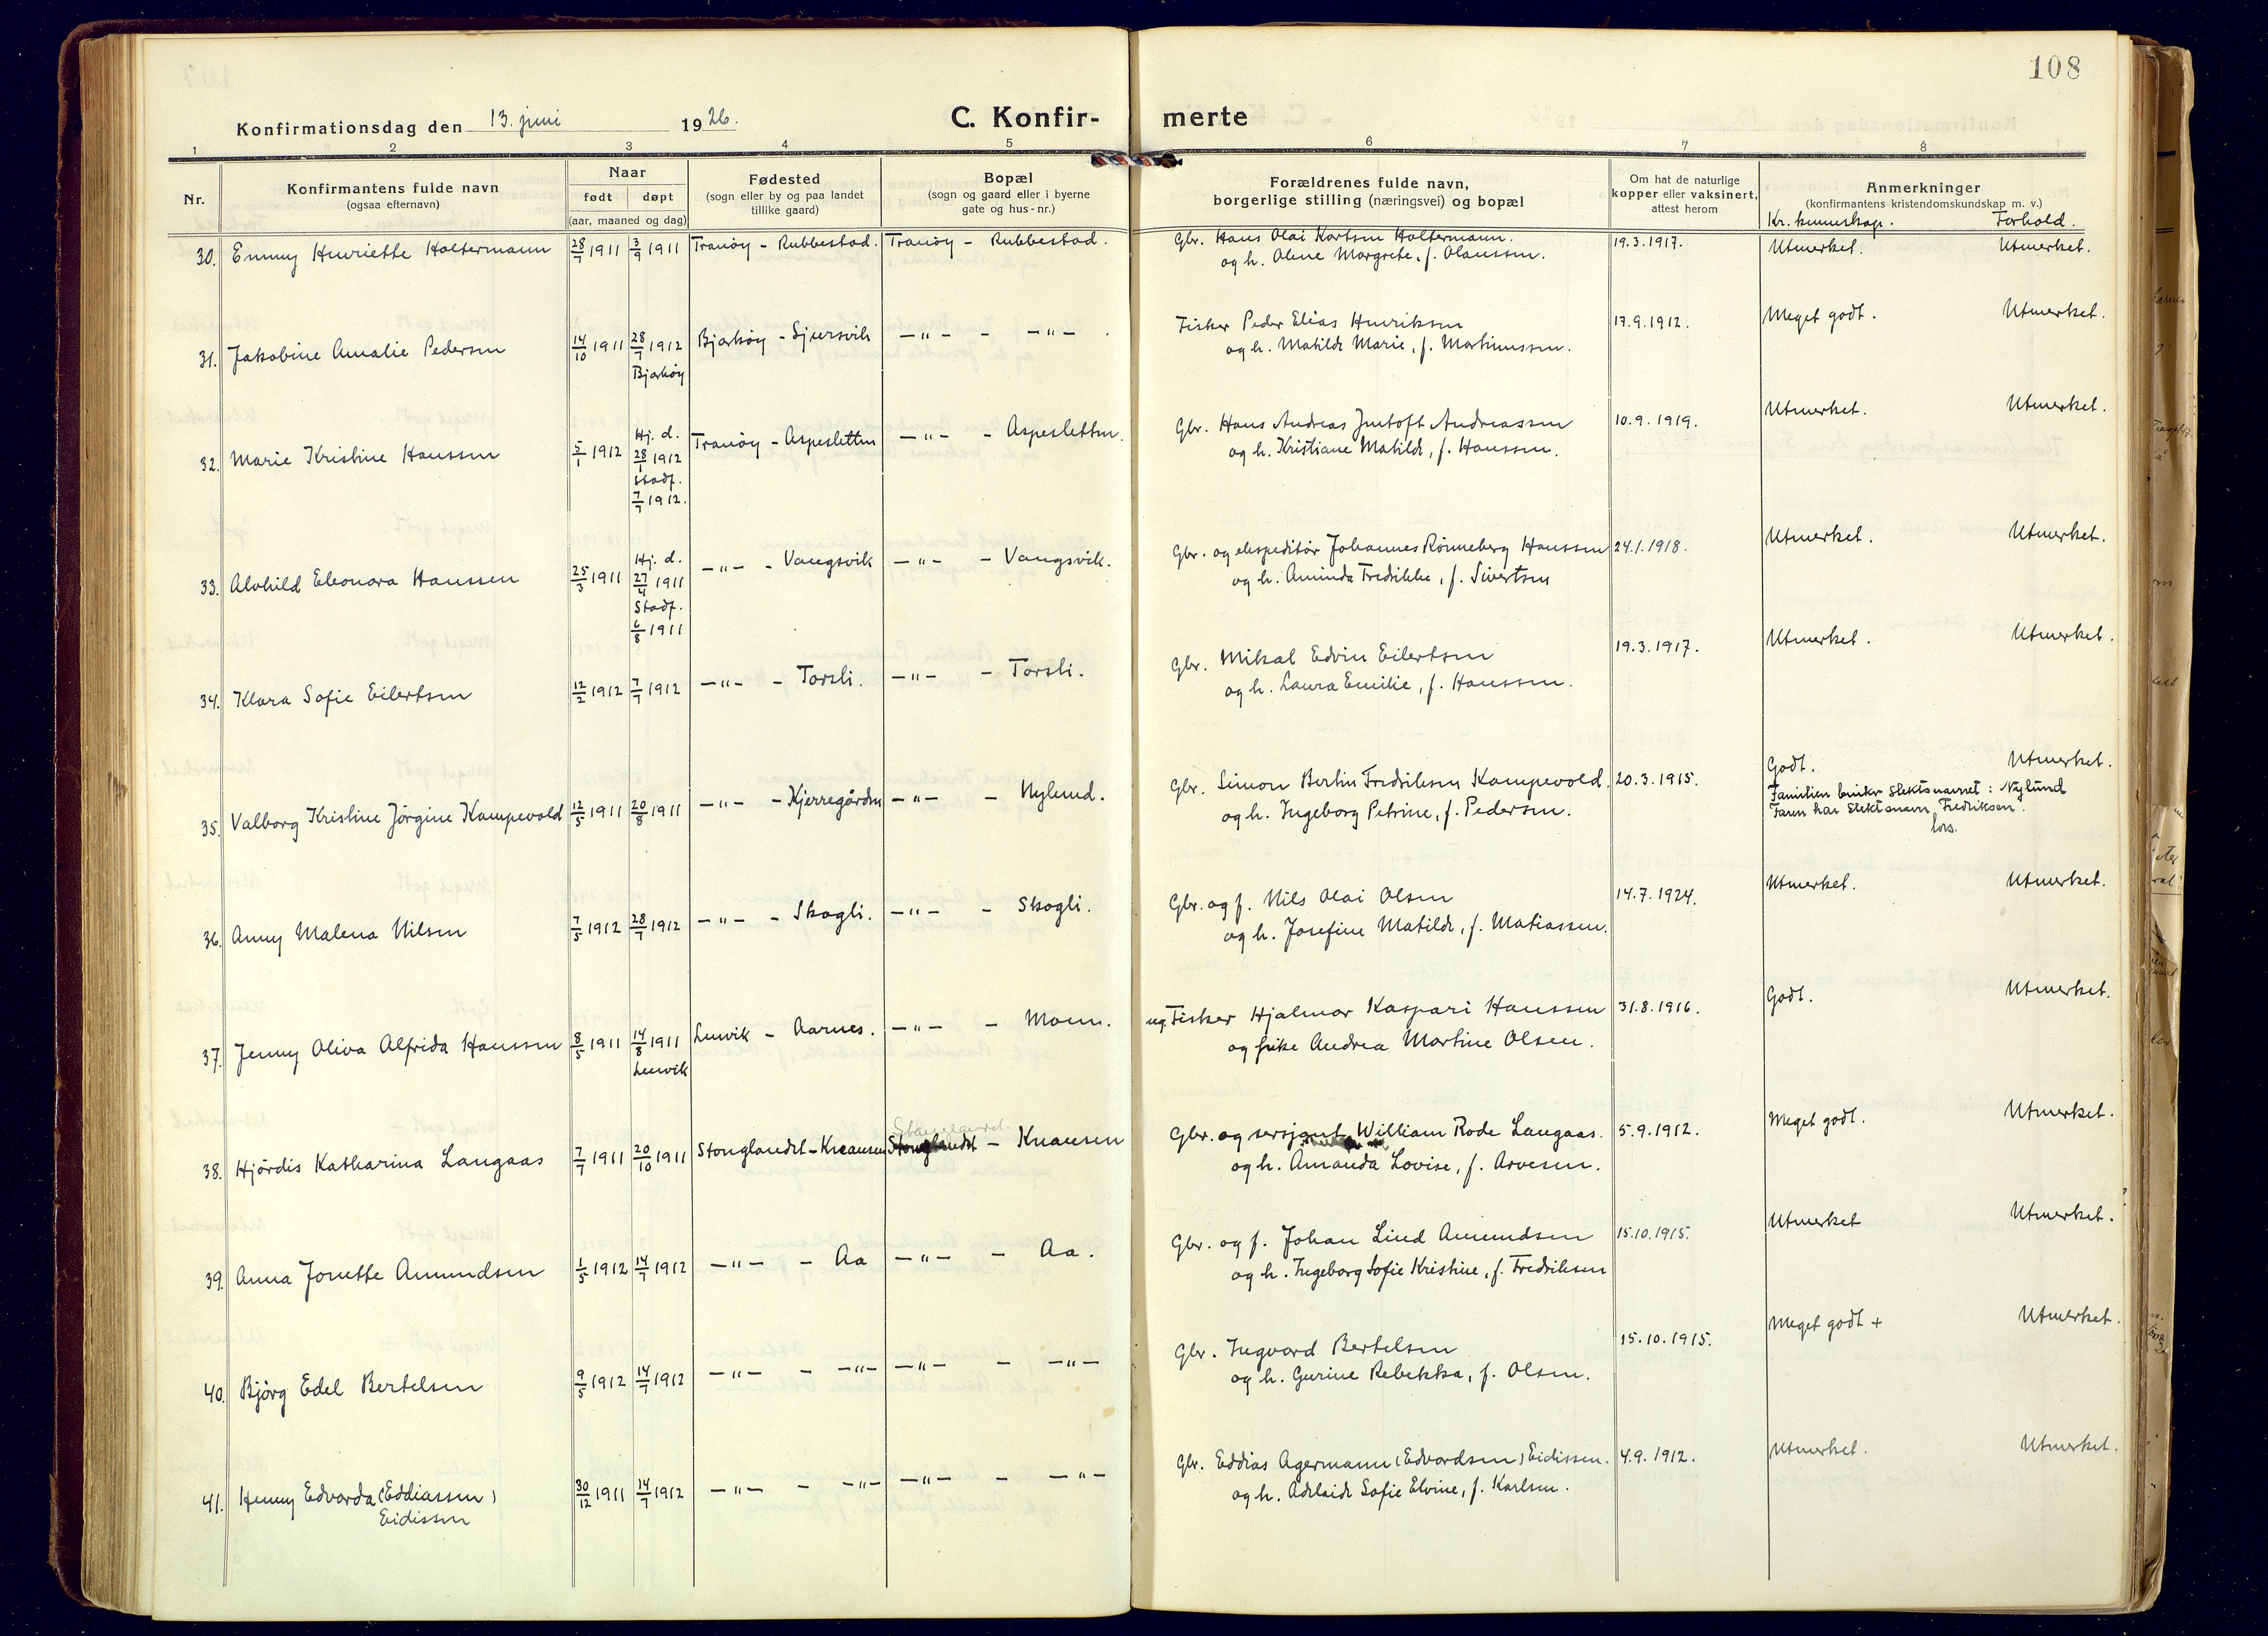 108
Konfirmationsdag den 13. juni 1926.
C. Konfir-
merte
1 2 3 4 5 6 7 8
Nr.
Konfirmantens fulde navn
(ogsaa efternavn)
Naar
født døpt
(aar, maaned og dag)
Fødested
(sogn eller by og paa landet
tillike gaard)
Bopæl
(sogn og gaard eller i byerne
gate og hus-nr.)
Forældrenes fulde navn,
borgerlige stilling (næringsvei) og bopæl
Om hat de naturlige
kopper eller vaksinert,
attest herom
Anmerkninger
(konfirmantens kristendomskundskap m. v.)
Kr. kunnskap. Forhold.
30. Emmy Henriette Holtermann 28/7 1911 3/9 1911 Tranöy - Rubbestad. Tranöy - Rubbestad.
Gbr. Hans Olai Kortsen Holtermann.
og h. Oline Margrete, f. Olaussen.
19.3.1917. Utmerket. Utmerket.
31. Jakobine Amalie Pedersen 14/10 1911 28/7 1912 Bjarköy - Sjursvik -"- - -"- .
Bjarköy
Fisker Peder Elias Henriksen
og h. Matilde Marie, f. Martinussen.
17.9.1912. Meget godt. Utmerket.
32. Marie Kristine Hanssen 5/1 1912 Hj. d. Tranöy - Aspesletten -"- - Aspesletten.
28/1 1912
stadf.
7/7 1912.
Gbr. Hans Andreas Jentoft Andreassen
og h. Kristiane Matilde, f. Hanssen.
10.9.1919. Utmerket. Utmerket.
33. Alvhild Eleonora Hanssen 25/3 1911 Hj. d. -"- - Vangsvik -"- - Vangsvik.
27/4 1911
Stadf.
6/8 1911
Gbr. og ekspeditör Johannes Rönneberg Hanssen
og h. Aminda Fredrikke, f. Sivertsen
24.1.1918. Utmerket. Utmerket.
34. Klara Sofie Eilertsen 12/2 1912 7/7 1912 -"- - Torsli. -"- - Torsli.
Gbr. Mikal Edvin Eilertsen
og h. Laura Emilie, f. Hanssen.
19.3.1917. Utmerket. Utmerket.
35. Valborg Kristine Jörgine Kampevold 12/5 1911 20/8 1911 -"- - Kjerregården -"- - Nylund.
Gbr. Simon Bertin Fredriksen Kampevold.
og h. Ingeborg Petrine, f. Pedersen.
20.3.1915. Godt. Utmerket.
Familien bruker slektsnavnet: Nylund
Faren har slektsnavn Fredriksen.
36. Anny Malena Nilsen 7/5 1912 28/7 1912 -"- - Skogli. -"- - Skogli.
Gbr. og f. Nils Olai Olsen
og h. Josefine Matilde, f. Matiassen.
14.7.1924. Utmerket. Utmerket.
37. Jenny Oliva Alfrida Hanssen 8/5 1911 14/8 1911 Lenvik - Aarnes. -"- - Moen.
Lenvik
ug. Fisker Hjalmar Kaspari Hanssen
og pike Andrea Martine Olsen.
31.8.1916. Godt. Utmerket.
38. Hjördis Katharina Langaas 7/7 1911 20/10 1911 Stonglandet - Knausen Stonglandet - Knausen
Gbr. og sersjant William Rode Langaas.
og h. Amanda Lovise, f. Arvesen.
5.9.1912. Meget godt. Utmerket.
39. Anna Jonette Amundsen 1/5 1912 14/7 1912 -"- - Aa -"- - Aa.
Gbr. og f. Johan Lind Amundsen
og h. Ingeborg Sofie Kristine, f. Fredriksen
15.10.1915. Utmerket Utmerket.
40. Björg Edel Bertelsen 9/5 1912 14/7 1912 -"- - -"- -"- - -"-
Gbr. Ingvard Bertelsen
og h. Gurine Rebekka, f. Olsen.
15.10.1915. Meget godt + Utmerket.
41. Henny Edvarda (Eddiassen) 30/12 1911 14/7 1912 -"- - -"- -"- - -"-
Eidissen
Gbr. Eddias Agermann (Edvardsen) Eidissen.
og h. Adelaide Sofie Elvine, f. Karlsen.
4.9.1912. Utmerket. Utmerket.